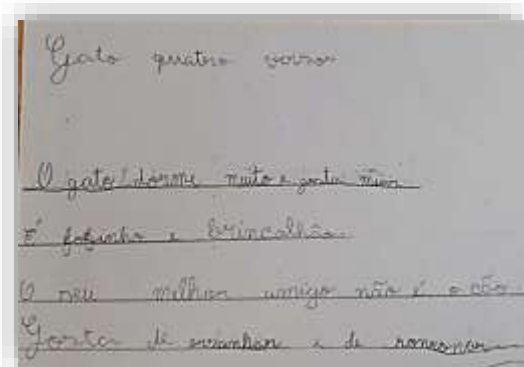 Gato quatro versos
O gato dorme muito e gosta
É fofinho e brincalhão
O seu melhor amigo não é o cão.
Gosta de arranhar e de ronronar